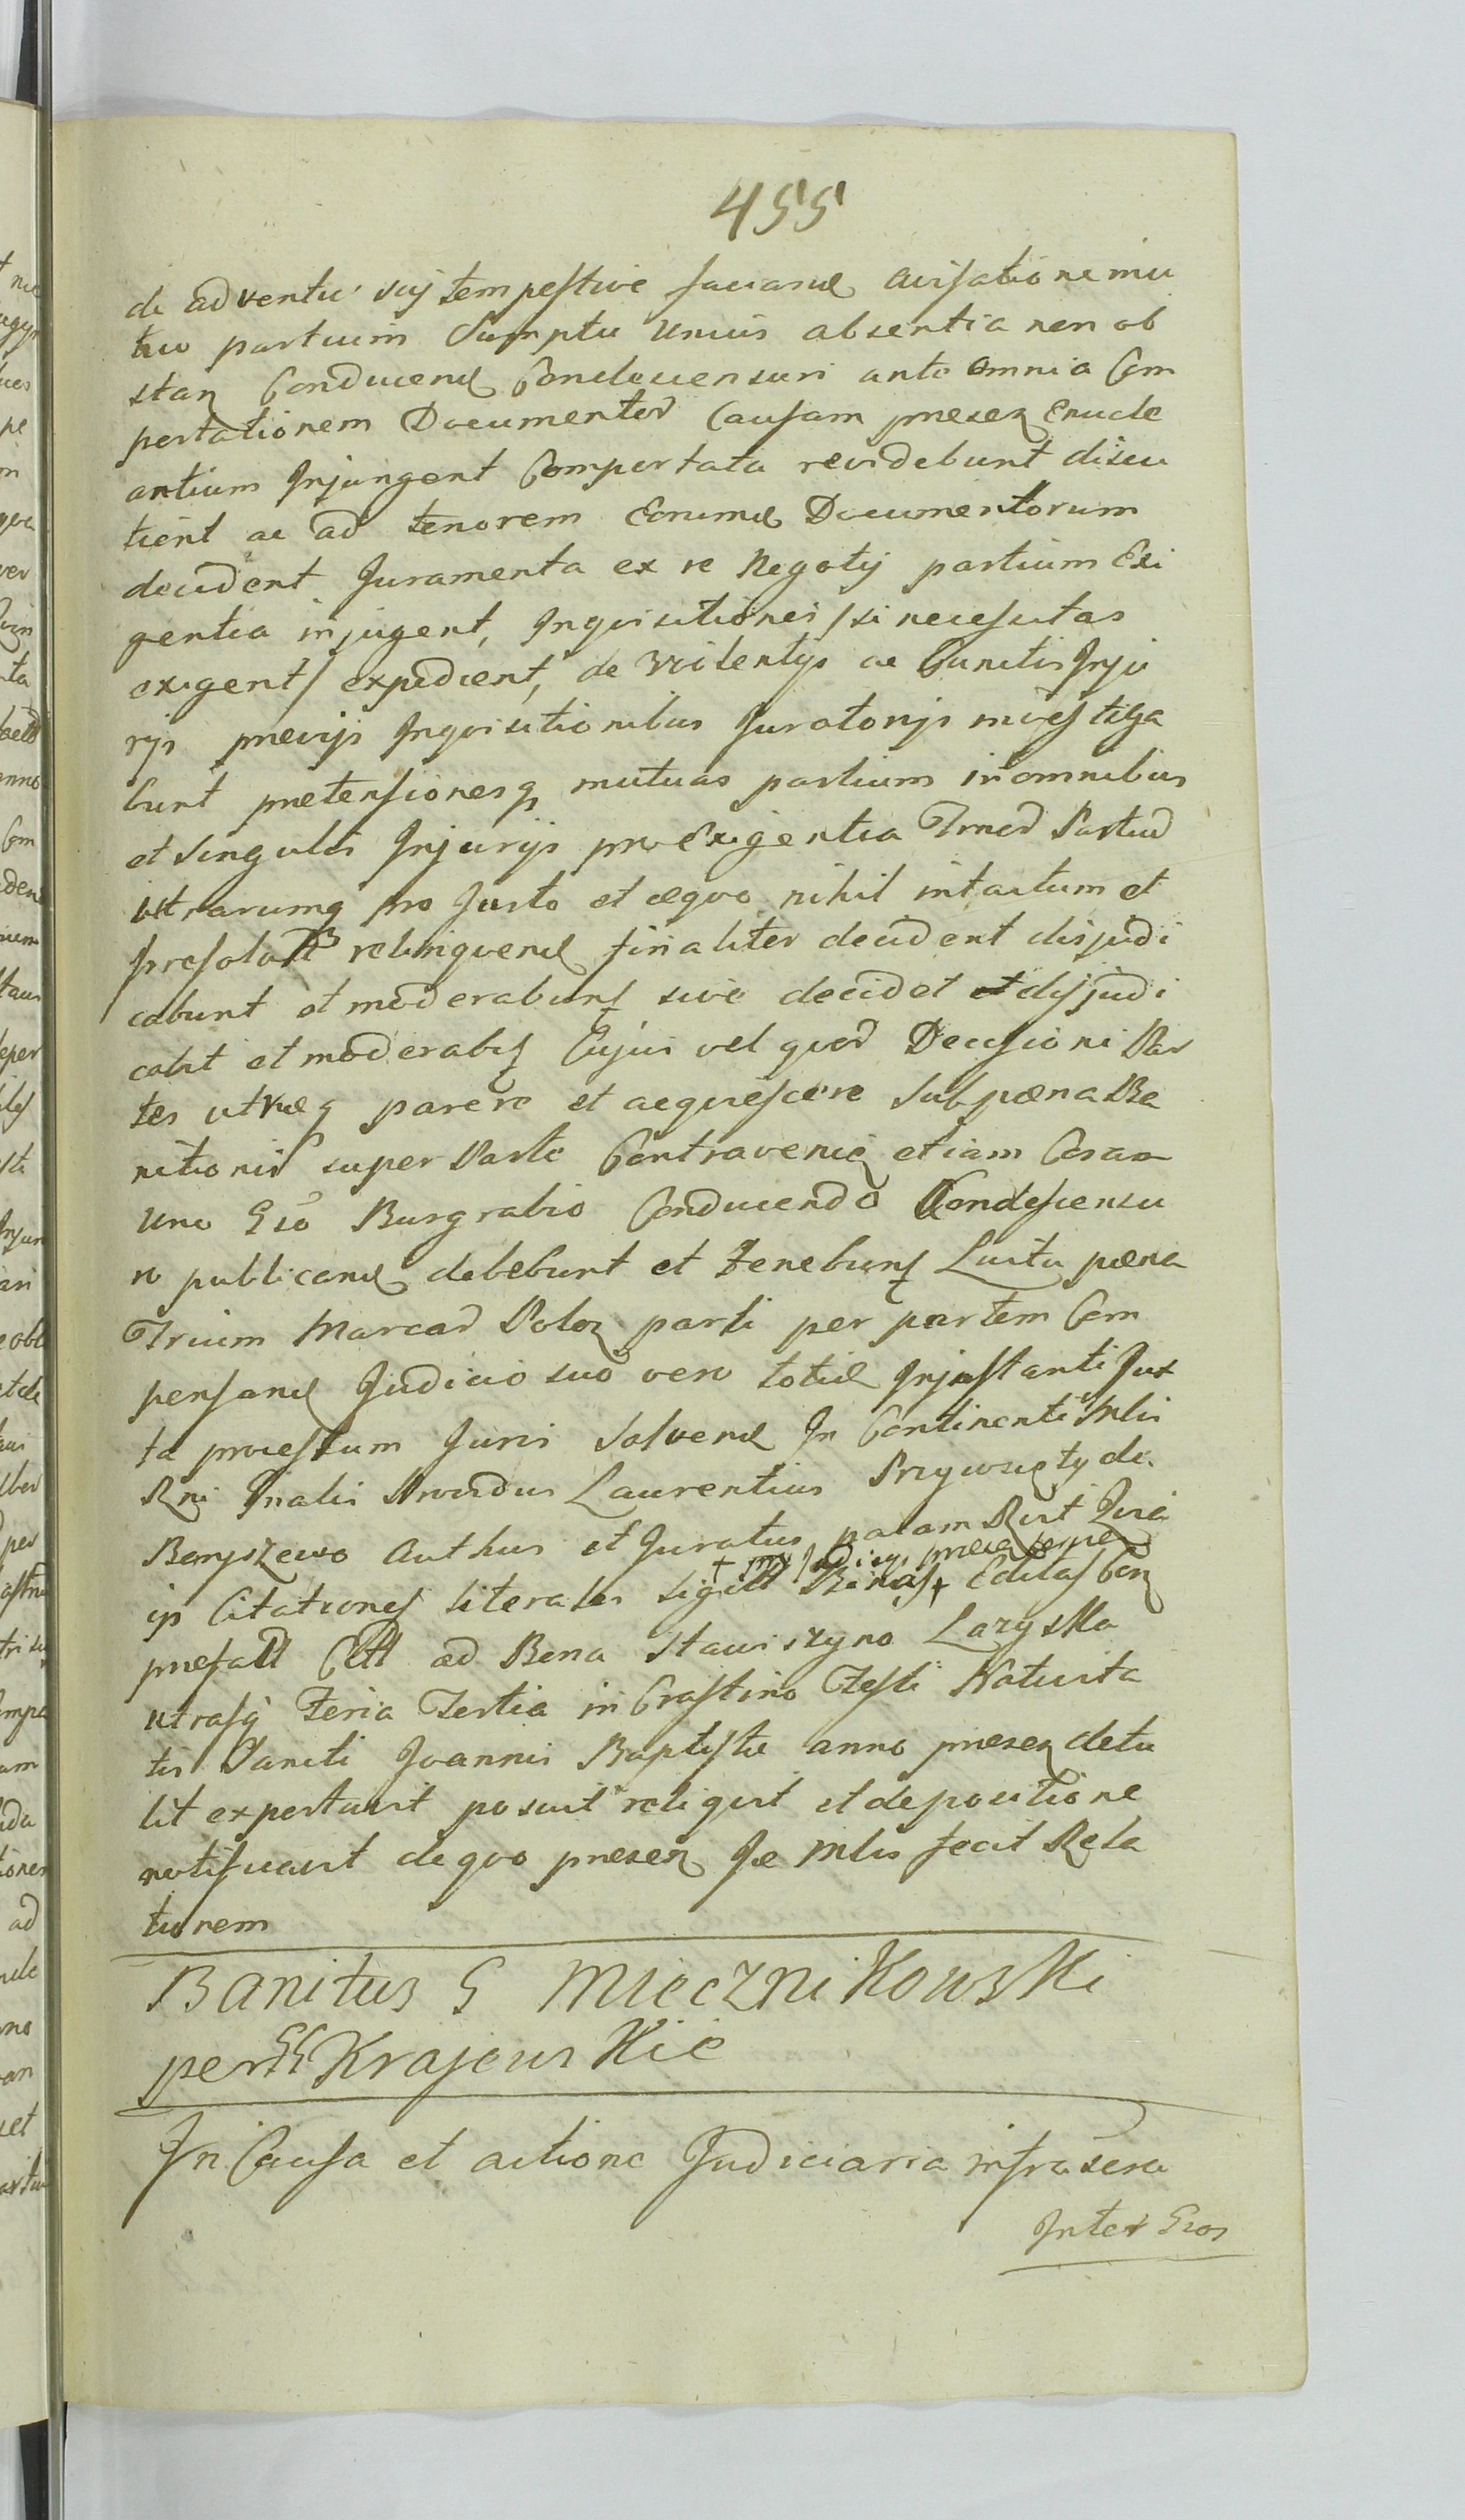 455
de adventu suj tempestive faciand avisatione mu
tuo partium Sumptu unius absentia non ob
stan Conducend Condescensuri ante omnia Com
portationem Documentor Causam presen Enucle
antium Injungent Comportata revidebunt discu
tient ac ad tenorem Eorumd Documentorum
decident Juramenta ex re Negotij partium Exi
gentia injugent, Inqvisitiones /si necessitas
exigent/ expedient, de Violentijs ac Cunctis Inju
rijs previjs Inqvisitionibus Juratorijs investiga
bunt pretensionesq mutuas partium in omnibus
et Singulis Injurijs pro Exigentia Partiu
utrarumq pro Justo et æqvo nihil intactum et
relinqvend finaliter decident disjudi
cabunt et moderabunt sive decidet et disjudi
cabit et moderabit Cujus vel qvor Decisioni Par
tes utræq parere et acqviescere Sub pæna Ba
nitionis super Parte Contraveni etiam Coram
uno Gso Burgrabio Conducendo Condescensu
ro publicand debebunt et tenebunt Luita pæna
Trium Marcar Polon parti per partem Com
pensand Judicio suo vero totid Injustanti Jux
ta processum Juris Solvend In Continenti Mlis
Rni Gnalis Providus Laurentius Przywczęty de
Boryszewo Authus et Juratus palam Rcit Qvia
is Citationes literales sigill Binas + Editas Con
prefatt Citt ad Bona Stawiszyno Lazyska
utrasq Feria Tertia in Crastino Festi Nativita
tis Sancti Joannis Baptistæ anno presen detu
lit exportavit posuit reliqvit et depositione
notificavit de qvo presen Se Mlis fecit Rela
tionem
Banitus G Miecznikowski
per GG Krajewskie
In Causa et actione Judiciaria infrascra
Inter Gsos